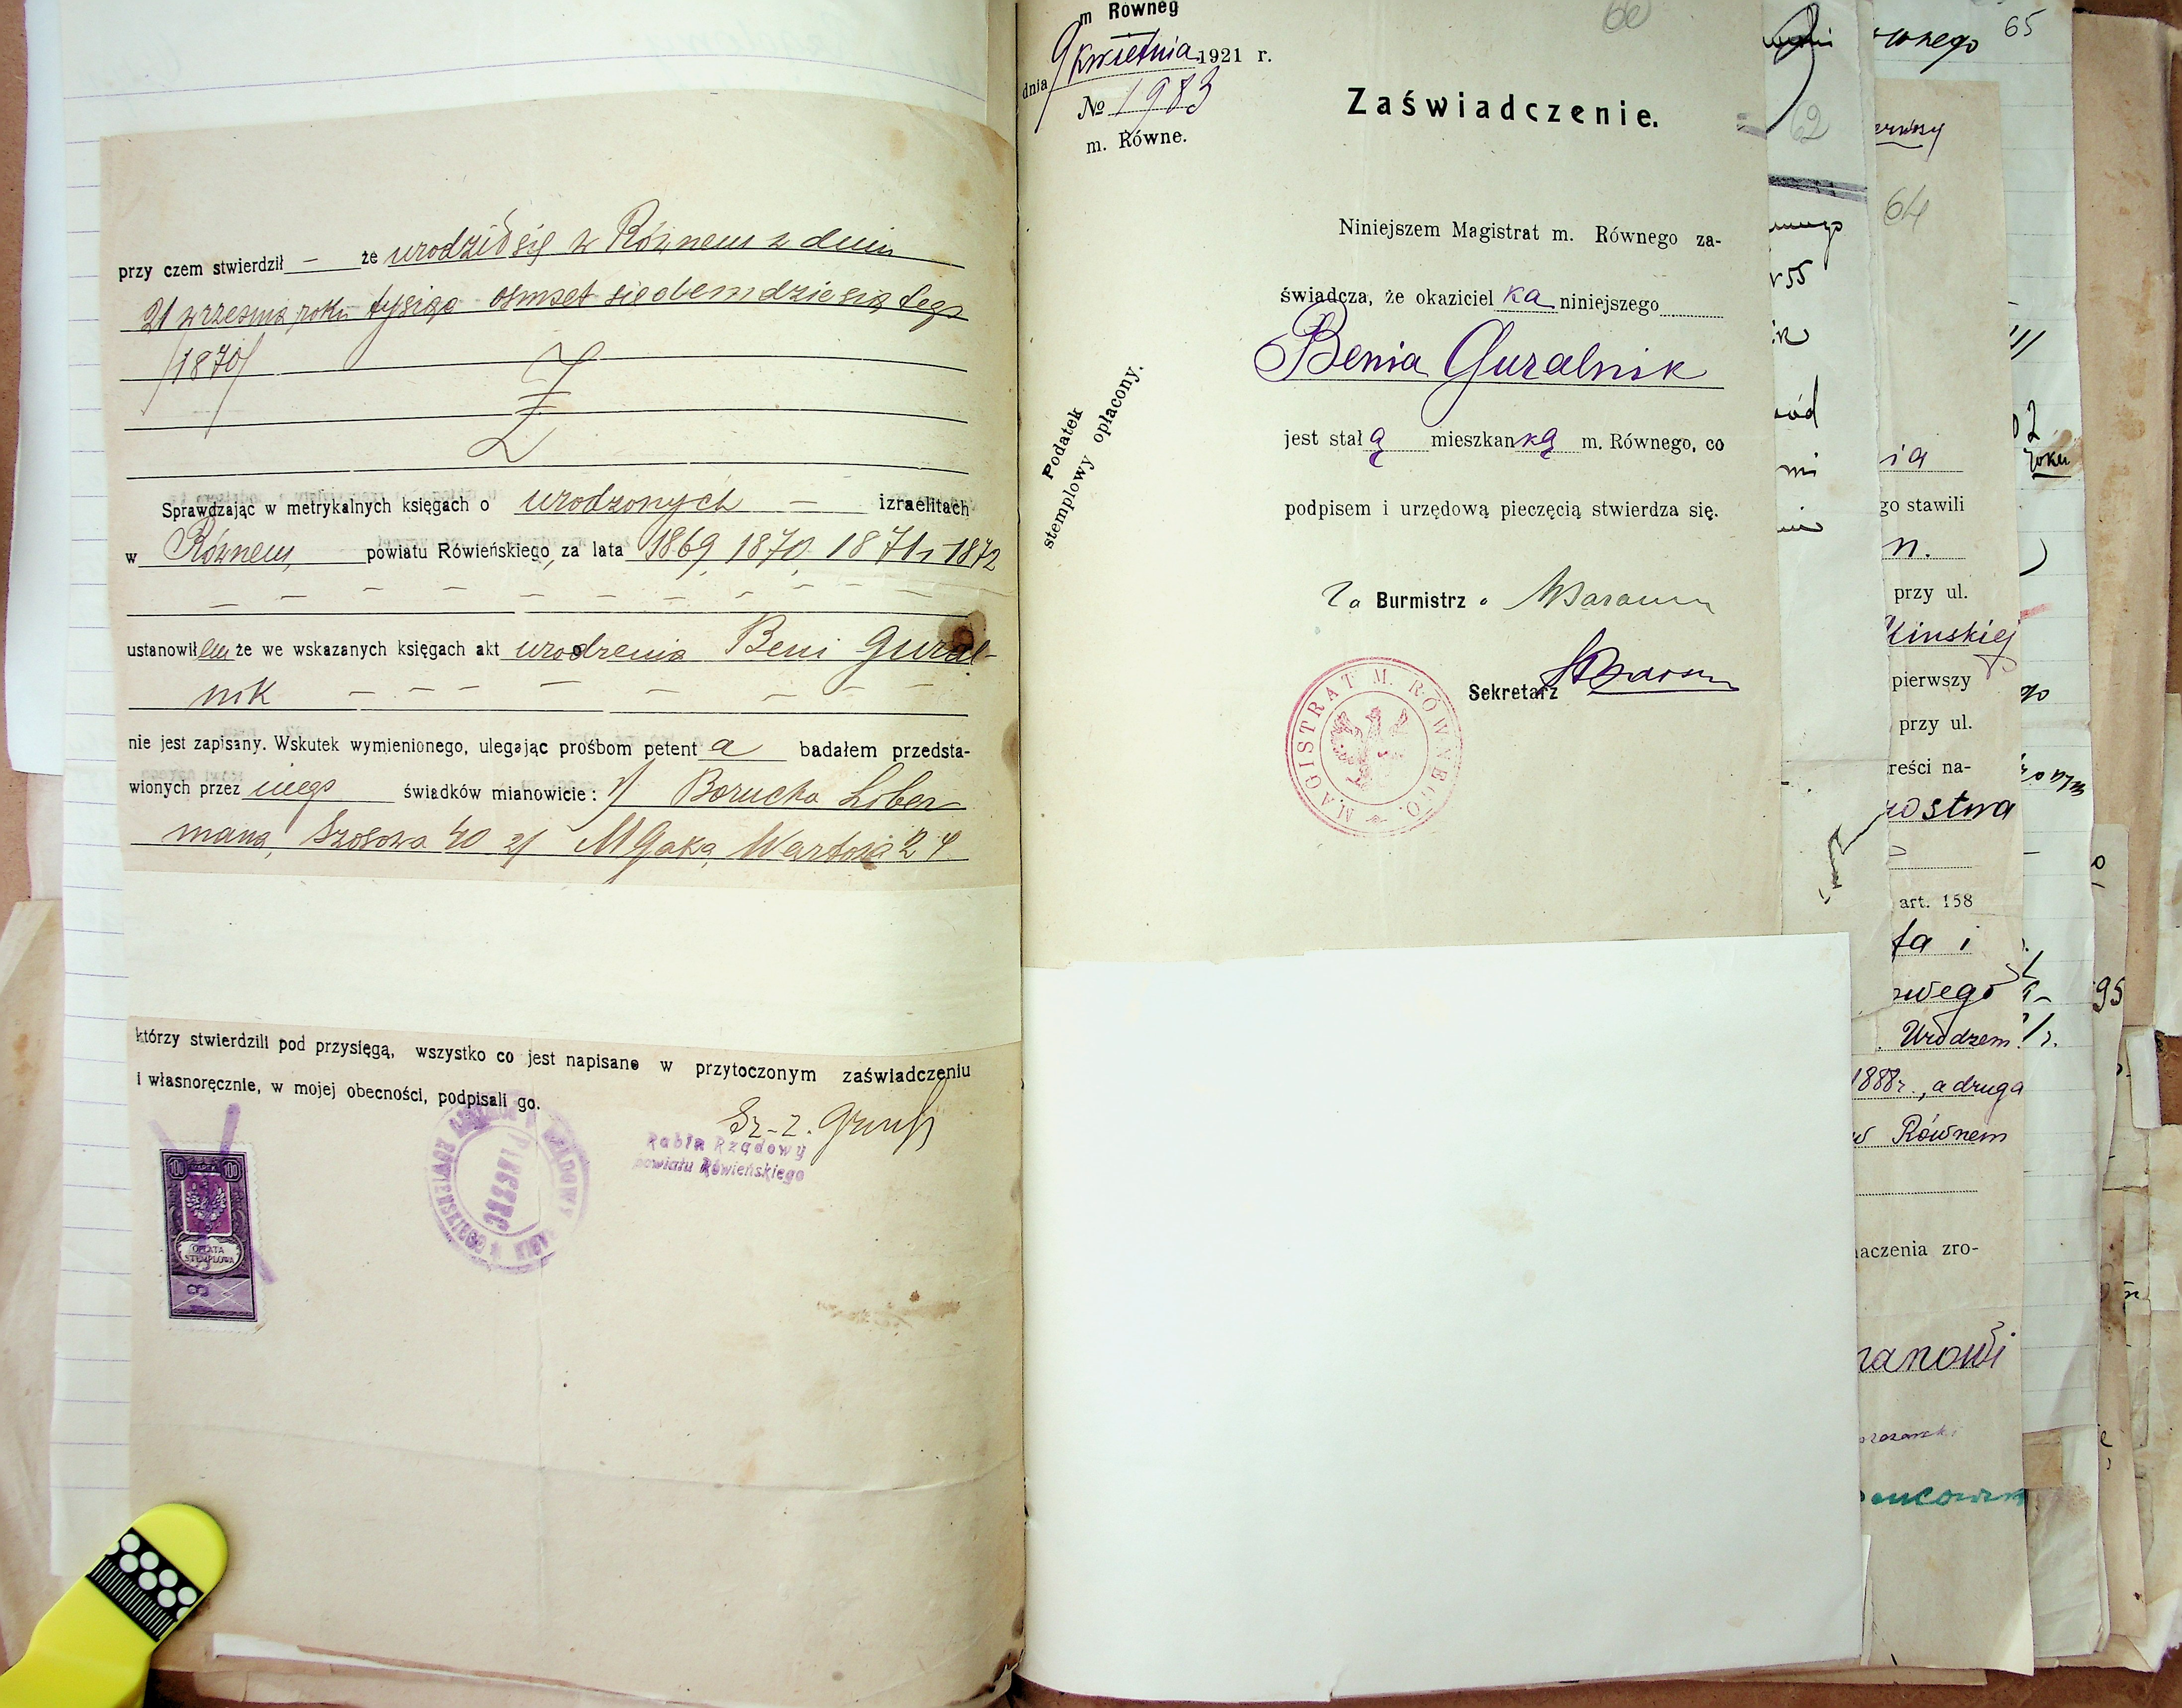 przy czem stwierdził — że urodził się w Równem z dnia
21 września roku tysiąc osmset siedemdziesiątego
/1870/
Sprawdzając w metrykalnych księgach o urodzonych — izraelitach
w Równem, powiatu Rówieńskiego, za lata 1869, 1870, 1871 i 1872
ustanowiłem że we wskazanych księgach akt urodzenia Beni Gural-
nik
nie jest zapisany. Wskutek wymienionego, ulegając prośbom petent a badałem przedsta-
wionych przez niego świadków mianowicie: 1/ Borucha Liber-
mana, Szosowa 40 2/ M Gaka, 24
którzy stwierdzili pod przysięgą, wszystko co jest napisane w przytoczonym zaświadczeniu
i własnoręcznie, w mojej obecności, podpisali go.
Sz-z.
Rabin Rządowy
powiatu Rówieńskiego
PIECZĘĆ
100 MAREK 100
OPŁATA
STEMPLOWA
m Równeg
dnia 9 kwietnia 1921 r.
№ 1983
m. Równe.
60
Zaświadczenie.
Podatek
stemplowy opłacony.
Niniejszem Magistrat m. Równego za-
świadcza, że okaziciel ka niniejszego
Benia Guralnik
jest stał ą mieszkan ką m. Równego, co
podpisem i urzędową pieczęcią stwierdza się.
Za Burmistrz a
Sekretarz
MAGISTRAT M. RÓWNEGO.
62
55
ód
mi
64
ia
go stawili
n.
przy ul.
pierwszy
przy ul.
reści na-
art. 158
ta i
owego
Urodzem
1888r., a druga
w Równem
aczenia zro-
nanowi
65
wnego
02
roku
go
95